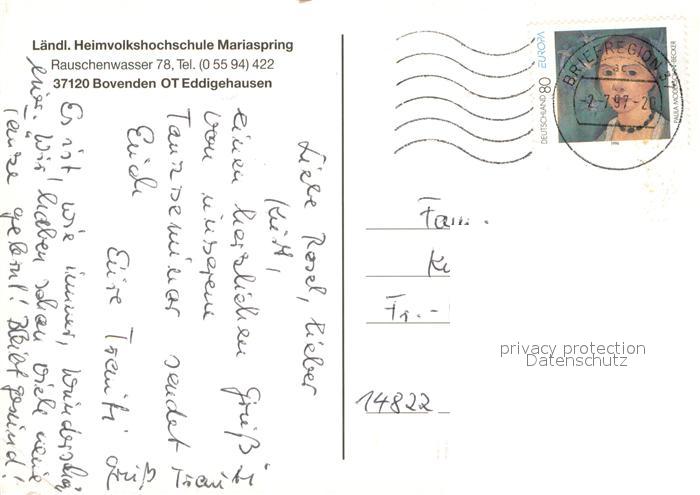 Ländl. Heimvolkshochschule Mariaspring
Rauschenwasser 78, Tel. (0 55 94) 422
37120 Bovenden OT Eddigehausen
Liebe Rosel, lieber
Kurt,
einen herzlichen Gruß
von unserem
Tanzseminar sendet
Euch
Eure Trauti
Gruß Trauti
Es ist wie immer, wunderschön
hier. Wir haben schon viele neue
Tänze gelernt! Bleibt gesund!
DEUTSCHLAND 80 EUROPA
PAULA MODERSOHN-BECKER
1996
BRIEFREGION 37
ac
-2.7.97-20
Fam.
K
Fr.-
14822
privacy protection
Datenschutz